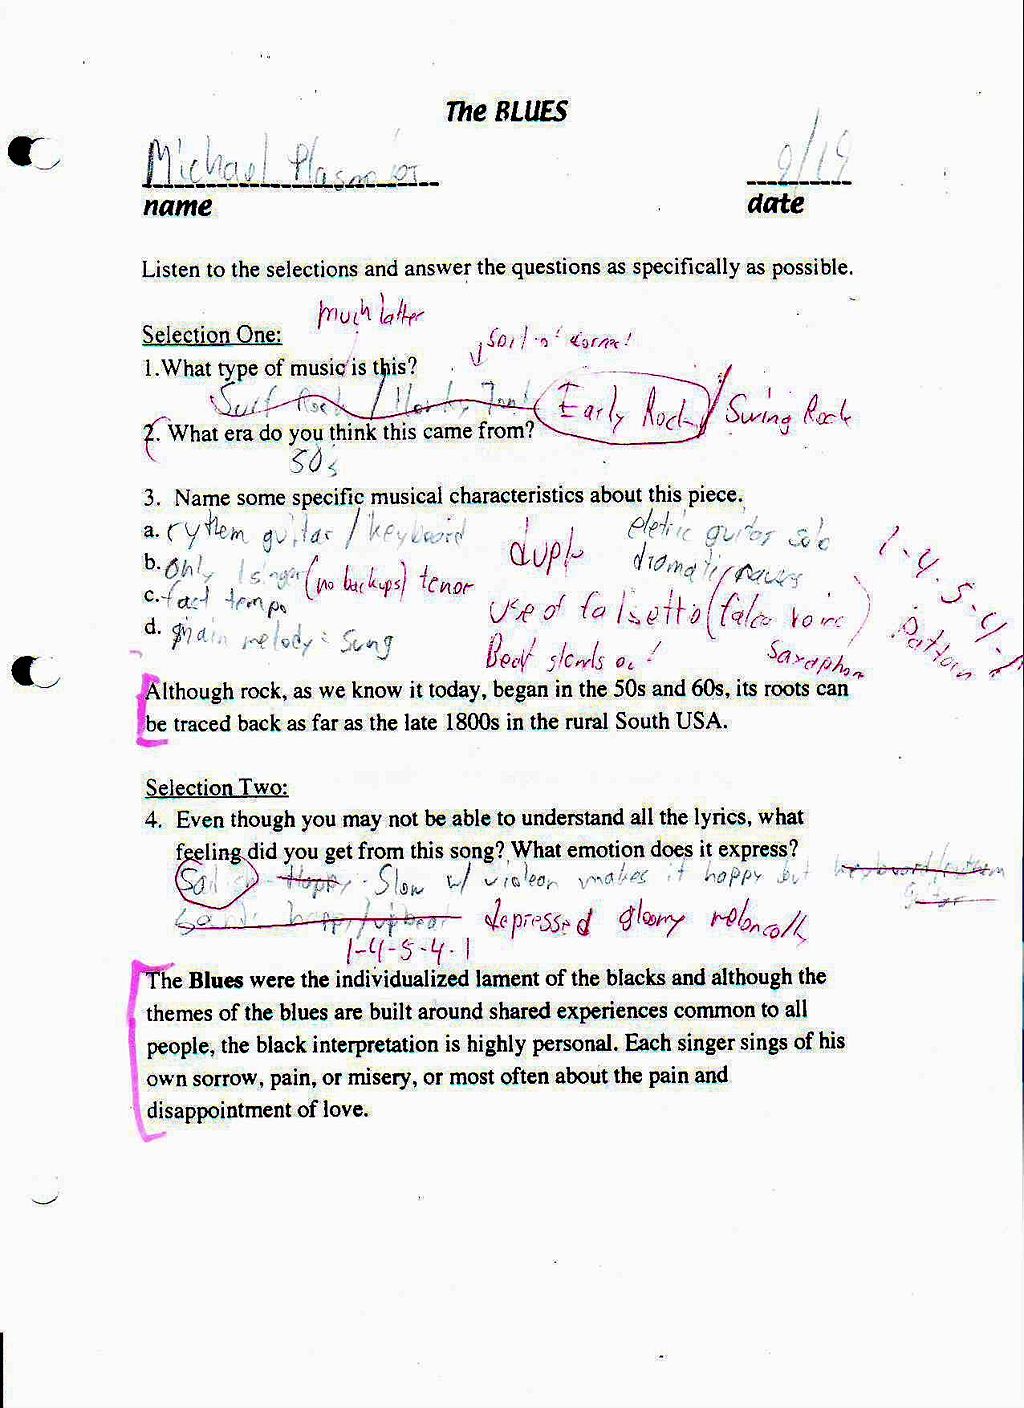 The BLUES
Michael
name
9/19
date
Listen to the selections and answer the questions as specifically as possible.
much latter
Selection One:
1.What type of music is this?
Surf Rock /
Early Rock / Swing Rock
2. What era do you think this came from?
50s
3. Name some specific musical characteristics about this piece.
a. rythem guitar / keyboard
duple
eletric guitar solo
b. only 1 singer (no backups) tenor
dramatic pauses
1-4-5-4-1
Pattern
c. fast tempo
use of falsetto (false voice)
d. main melody = sung
Beat stands out!
Saxaphon
Although rock, as we know it today, began in the 50s and 60s, its roots can
be traced back as far as the late 1800s in the rural South USA.
Selection Two:
4. Even though you may not be able to understand all the lyrics, what
feeling did you get from this song? What emotion does it express?
Sad Happy - Slow w/ violean makes it happy but keyboard/rythem
guitar
happy/upbeat depressed gloomy meloncolly
1-4-5-4-1
The Blues were the individualized lament of the blacks and although the
themes of the blues are built around shared experiences common to all
people, the black interpretation is highly personal. Each singer sings of his
own sorrow, pain, or misery, or most often about the pain and
disappointment of love.